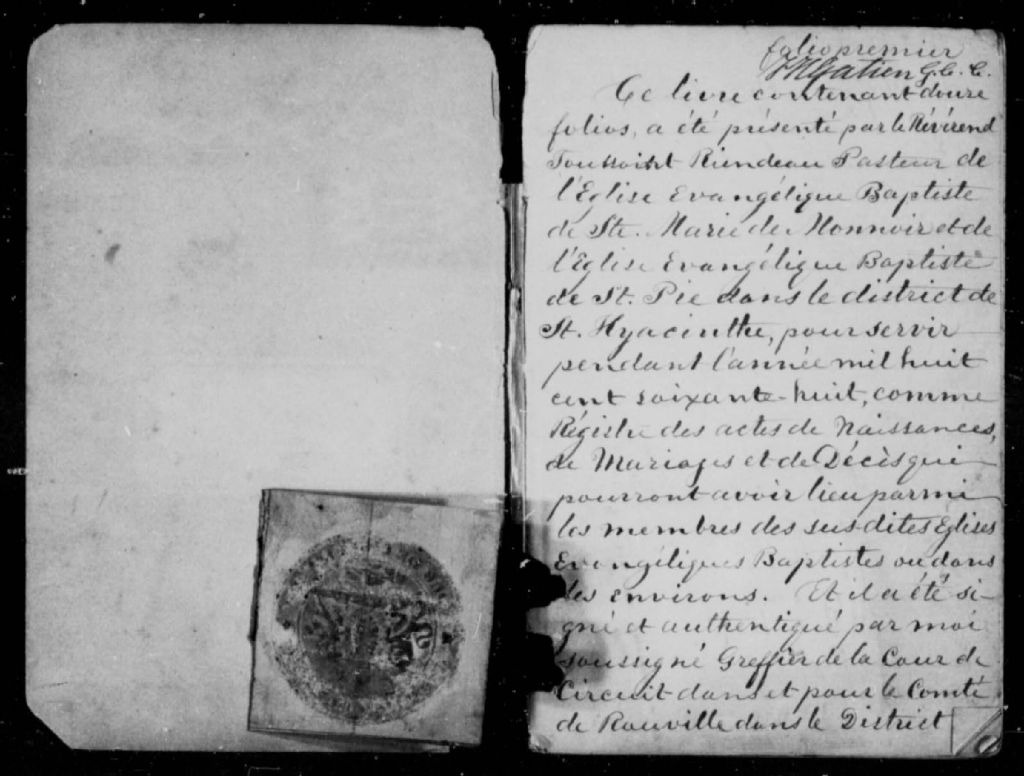 folio premier
Gatien G.C.C.
Ce livre contenant douze
folios, a été présenté par le Révérend
Toussaint Riendeau Pasteur de
l'Eglise Evangélique Baptiste
de Ste. Marie de Monnoir et de
l'Eglise Evangélique Baptiste
de St. Pie dans le district de
St. Hyacinthe, pour servir
pendant l'année mil huit
cent soixante-huit, comme
Régistre des actes de Naissances,
de Mariages et de Décès qui
pourront avoir lieu parmi
les membres des susdites Eglises
Evangéliques Baptistes ou dans
les environs. Et il a été si-
gné et authentiqué par moi
soussigné Greffier de la Cour de
Circuit dans et pour le Comté
de Rouville dans le District